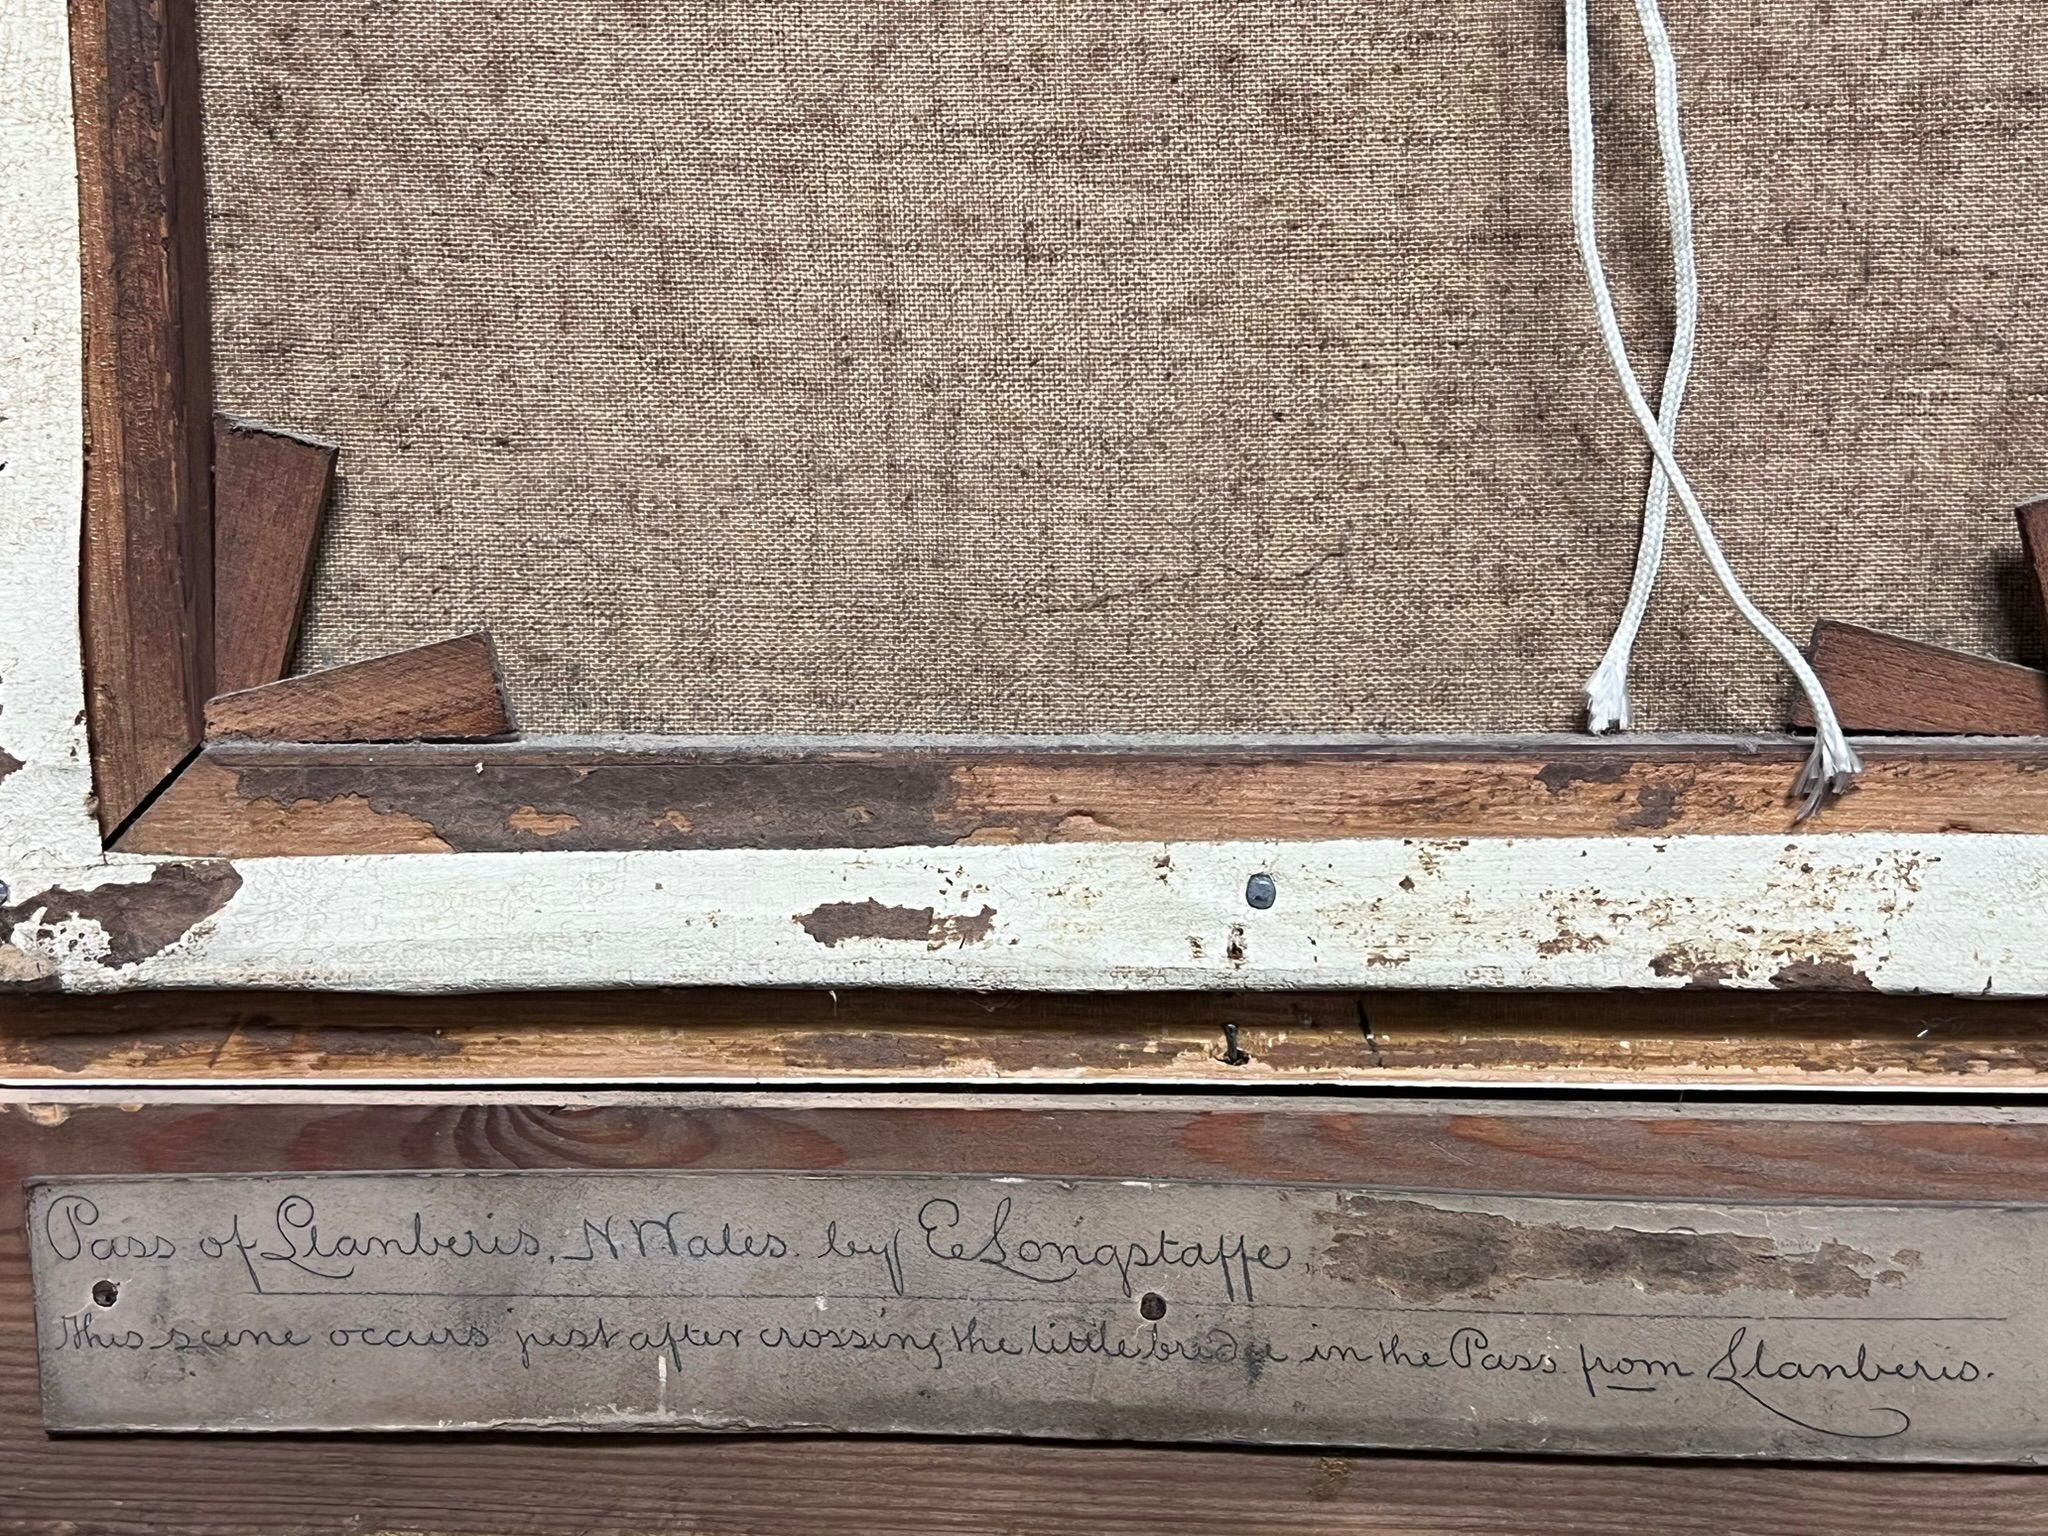 Pass of Llanberis, N Wales. by E Longstaffe
This scene occurs just after crossing the little bridge in the Pass from Llanberis.